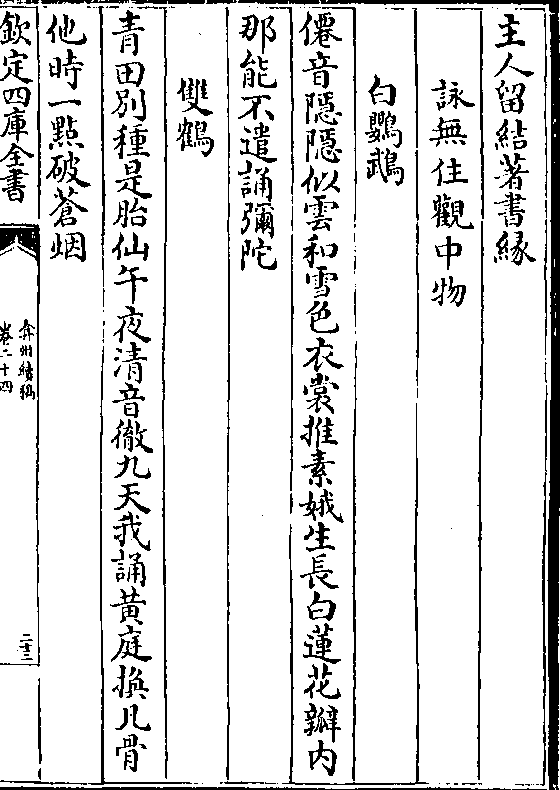 主人留結著書緣
詠無住觀中物
白鸚鵡
僊音隱隱似雲和雪色衣裳推素娥生長白蓮花瓣内
那能不遣誦彌陀
雙鶴
青田别種是胎仙午夜清音徹九天我誦黄庭換凡骨
他時一點破蒼烟
欽定四庫全書
弇州續稿
卷二十四
二十三